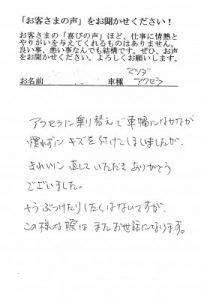 「お客さまの声」をお聞かせください！
お客さまの「喜びの声」ほど、仕事に情熱と
やりがいを与えてくれるものはありません。
良い事、悪い事なんでも結構です。ぜひ、お声
をお聞かせください。よろしくお願いします。
マツダ
お名前 車種 アクセラ
アクセラに乗り替えて車幅になかなか
慣れずにキズを付けてしまいましたが、
きれいに直していただきありがとう
ございました。
もうぶつけたりしたくはないですが、
この様な際はまたお世話になります。